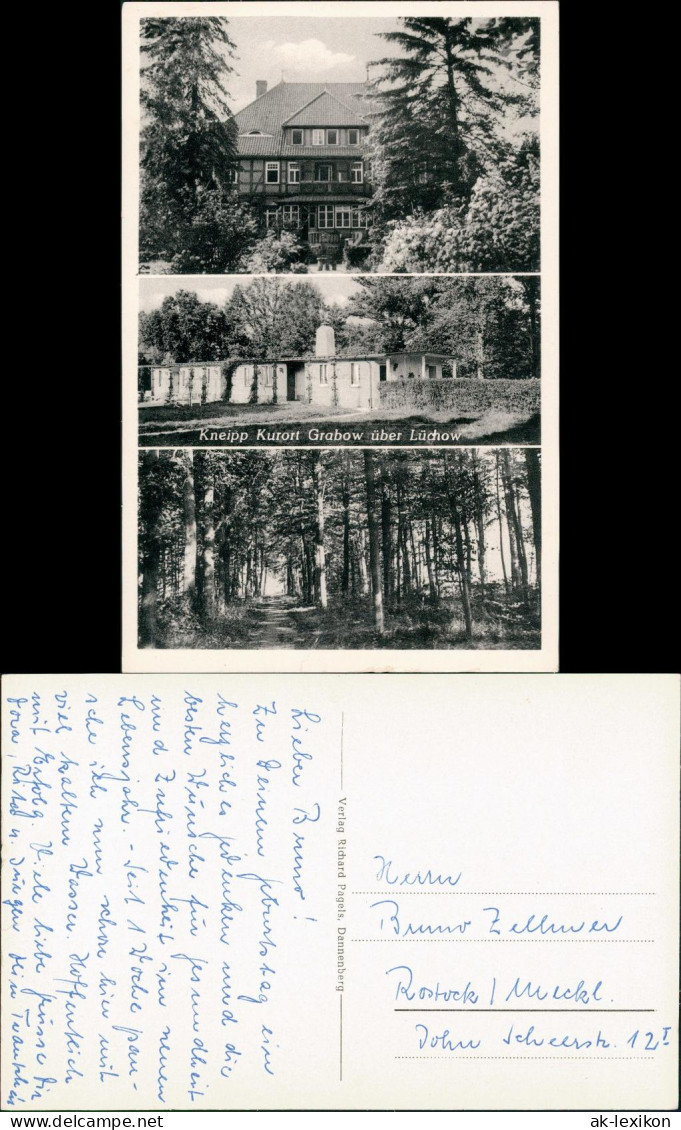 Kneipp Kurort Grabow über Lüchow
Lieber Bruno!
Zu Deinem Geburtstag ein
herzliches gedenken und die
besten Wünsche für Gesundheit
und Zufriedenheit im neuen
Lebensjahr. - Seit 1 Woche pan-
sche ich nun schon hier mit
viel kaltem Wasser. Hoffentlich
mit Erfolg. Viele liebe Grüsse Dir
Dora, u. Jürgen Dein
Verlag Richard Pagels, Dannenberg
Herrn
Bruno Zellmer
Rostock / Meckl.
John Scheerstr. 12 I
ak-lexikon